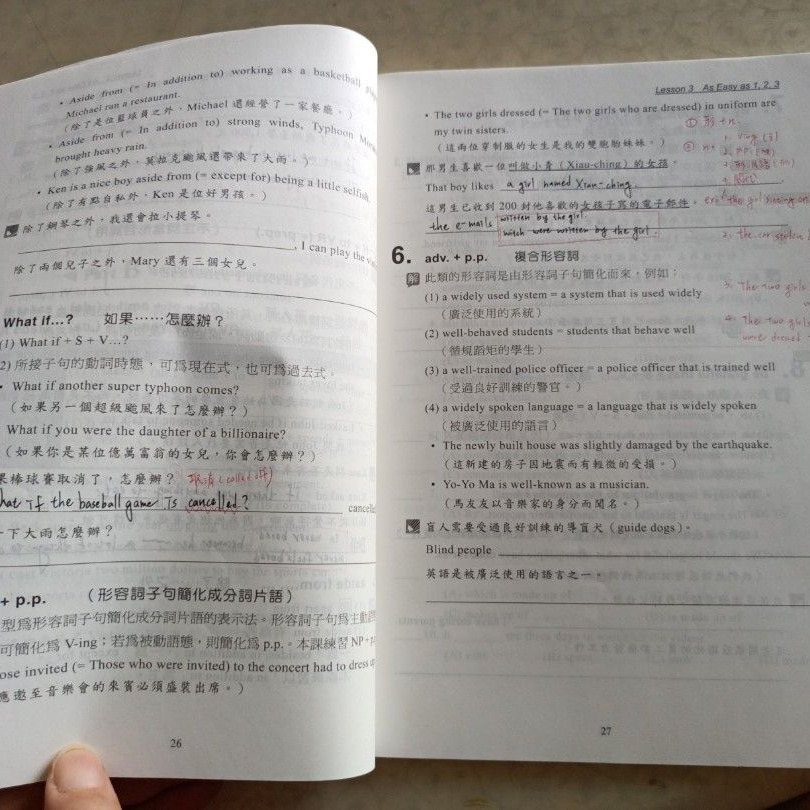 • Aside from (= In addition to) working as a basketball
Michael ran a restaurant.
(除了是位籃球員之外，Michael 還經營了一家餐廳。)
• Aside from (= In addition to) strong winds, Typhoon
brought heavy rain.
(除了強風之外，莫拉克颱風還帶來了大雨。)
• Ken is a nice boy aside from (= except for) being a little selfish.
(除了有點自私外，Ken 是位好男孩。)
除了鋼琴之外，我還會拉小提琴。
, I can play the
除了兩個兒子之外，Mary 還有三個女兒。
What if...? 如果……怎麼辦？
(1) What if + S + V...?
2) 所接子句的動詞時態，可為現在式，也可為過去式。
• What if another super typhoon comes?
(如果另一個超級颱風來了怎麼辦？)
What if you were the daughter of a billionaire?
(如果你是某位億萬富翁的女兒，你會怎麼辦？)
果棒球賽取消了，怎麼辦？ 取消 (called off)
hat if the baseball game is cancelled?
一下大雨怎麼辦？
+ p.p. (形容詞子句簡化成分詞片語)
型為形容詞子句簡化成分詞片語的表示法。形容詞子句為主動
可簡化為 V-ing；若為被動語態，則簡化為 p.p.。本課練習 NP+
ose invited (= Those who were invited) to the concert had to dress
應邀至音樂會的來賓必須盛裝出席。)
26
Lesson 3 As Easy as 1, 2, 3
• The two girls dressed (= The two girls who are dressed) in uniform are
my twin sisters.
(這兩位穿制服的女生是我的雙胞胎妹妹。)
① 形+n.
那男生喜歡一位叫做小青 (Xiau-ching) 的女孩。
That boy likes a girl named Xiau-ching.
這男生已收到 200 封他喜歡的女孩子寫的電子郵件。
the e-mails written by the girl.
witch were written by the girl.
6. adv. + p.p. 複合形容詞
解 此類的形容詞是由形容詞子句簡化而來，例如：
(1) a widely used system = a system that is used widely
(廣泛使用的系統)
(2) well-behaved students = students that behave well
(循規蹈矩的學生)
(3) a well-trained police officer = a police officer that is trained well
(受過良好訓練的警官。)
(4) a widely spoken language = a language that is widely spoken
(被廣泛使用的語言)
• The newly built house was slightly damaged by the earthquake.
(這新建的房子因地震而有輕微的受損。)
• Yo-Yo Ma is well-known as a musician.
(馬友友以音樂家的身分而聞名。)
盲人需要受過良好訓練的導盲犬 (guide dogs)。
Blind people
英語是被廣泛使用的語言之一。
3. The two girls
4. The two girls
were dressed
27